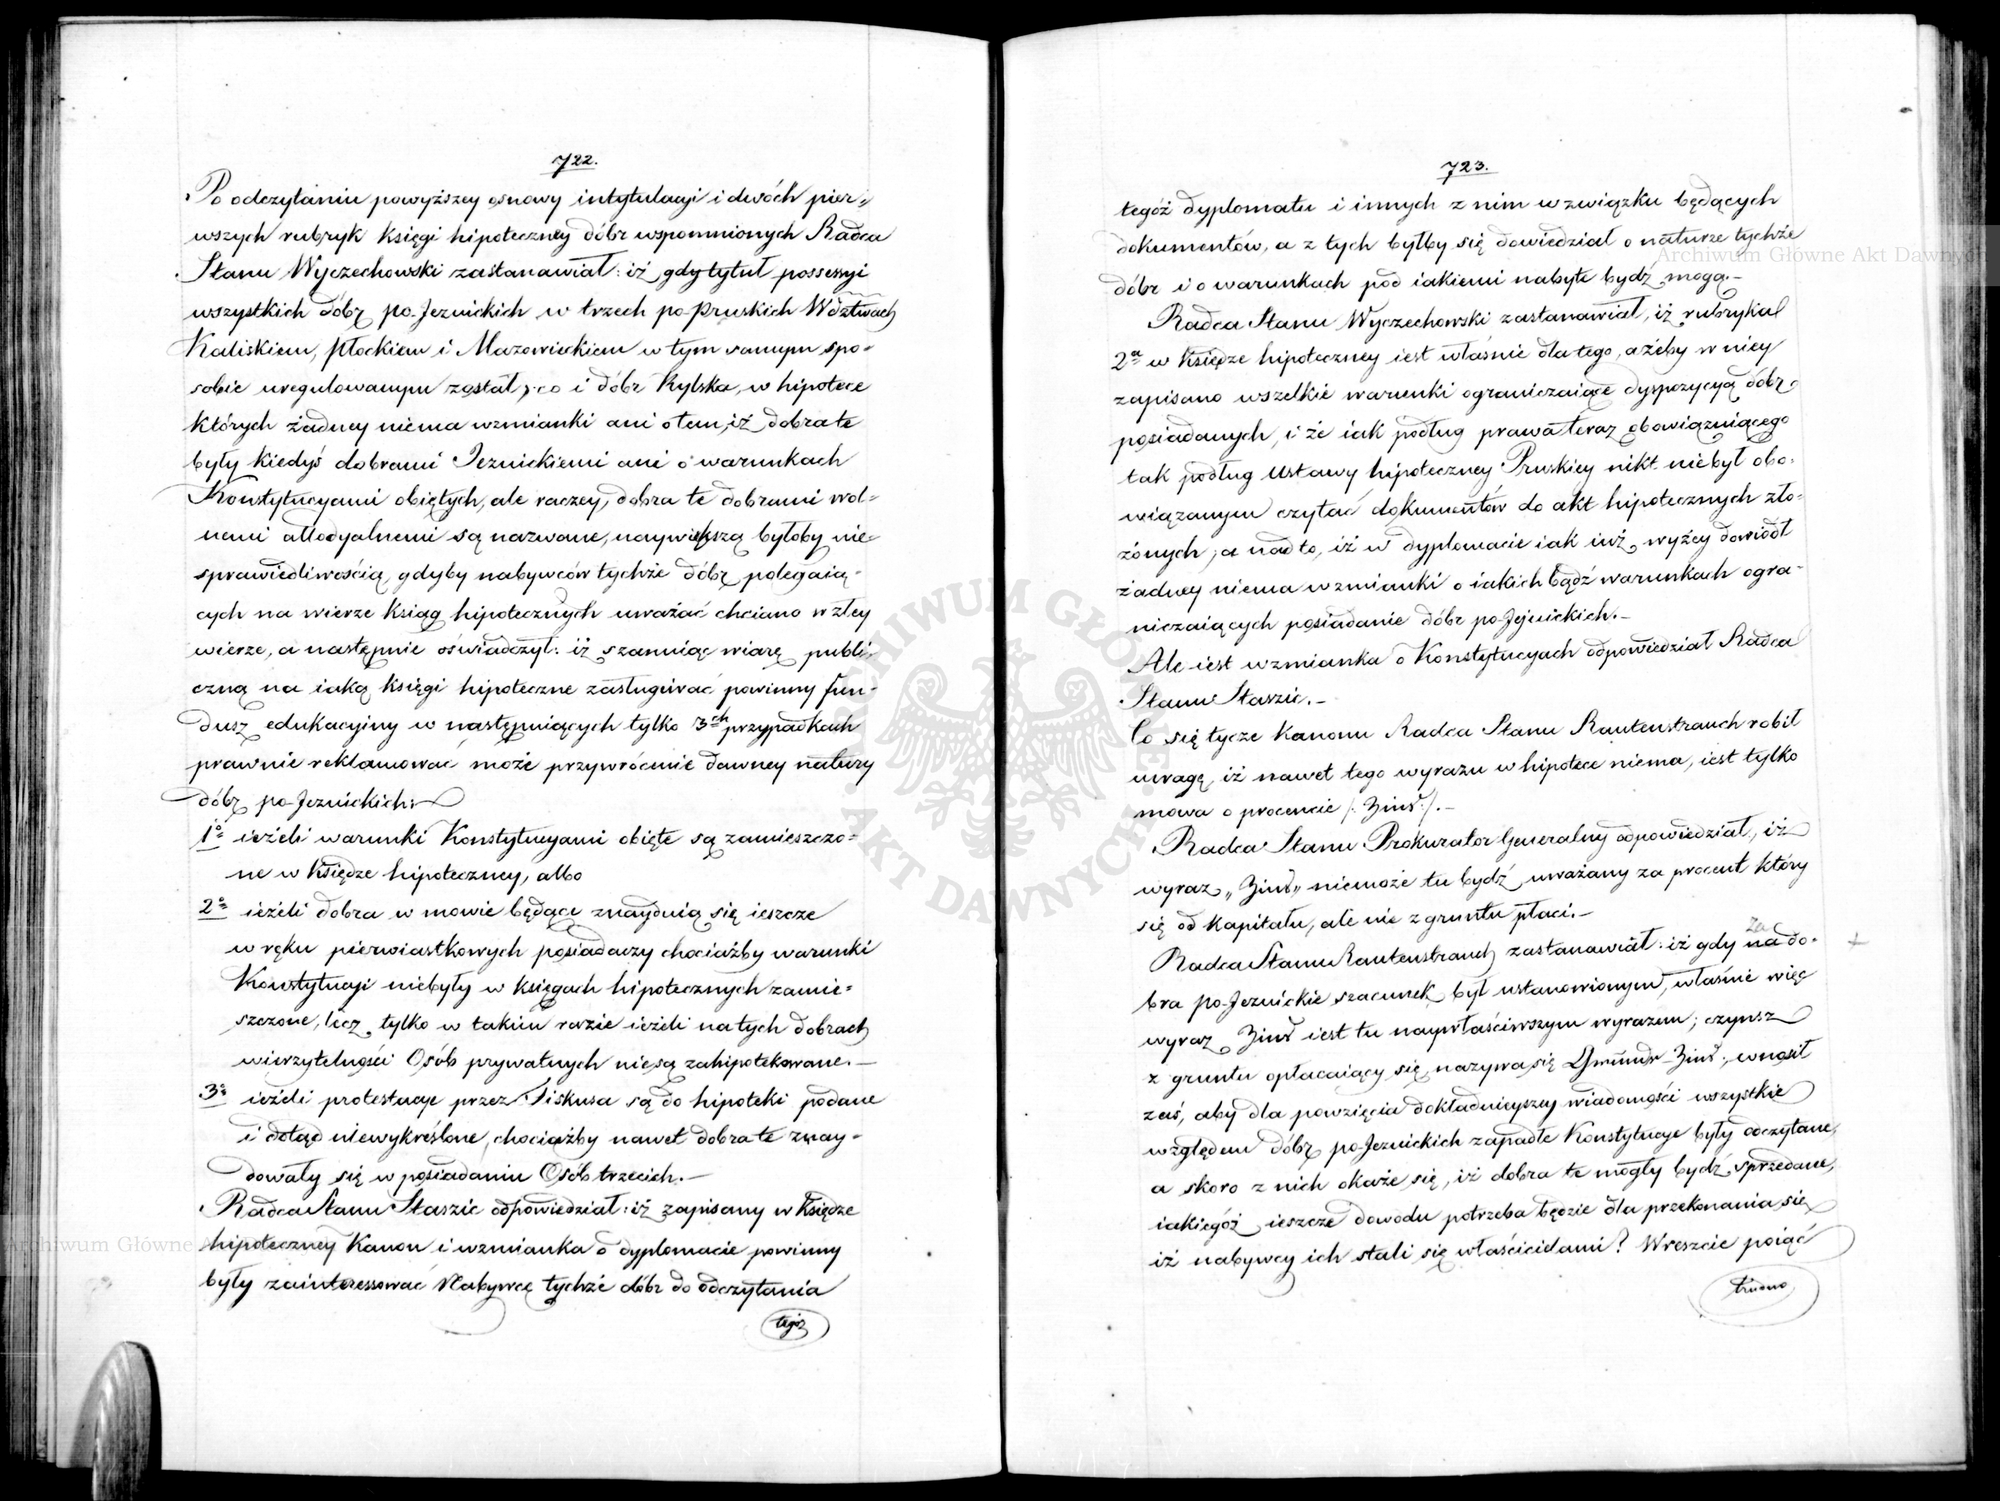 722.
Po odczytaniu powyższey osnowy intytulacyi i dwóch pier„
wszych rubryk księgi hipoteczney dóbr wspomnionych Radca
Stanu Wyczechowski zastanawiał: iż gdy tytuł possessyi
wszystkich dóbr po-Jezuickich w trzech po-Pruskich Wdztwach
Kaliskiem, Płockiem i Mazowieckiem w tym samym spo-
sobie uregulowanym został, co i dóbr Rylska, w hipotece
których żadney niema wzmianki ani o tem, iż dobra te
były kiedyś dobrami Jezuickiemi ani o warunkach
Konstytucyami obiętych, ale raczey, dobra te dobrami wol-
nemi allodyalnemi są nazwane, naywiększą byłoby nie-
sprawiedliwością, gdyby nabywców tychże dóbr polegaią-
cych na wierze ksiąg hipotecznych uważać chciano w złey
wierze, a następnie oświadczył: iż szanuiąc wiarę publi-
czną na iaką księgi hipoteczne zasługiwać powinny fun-
dusz edukacyiny w następuiących tylko 3ch przypadkach
prawnie reklamować może przywrócenie dawney natury
dóbr po-Jezuickich:
1o ieżeli warunki Konstytucyami obięte są zamieszczo-
ne w księdze hipoteczney, albo
2o ieżeli dobra w mowie będące znayduią się ieszcze
w ręku pierwiastkowych posiadaczy chociażby warunki
Konstytucyi niebyły w księgach hipotecznych zamie-
szczone, lecz tylko w takim razie ieżeli na tych dobrach
wierzytelności Osób prywatnych nie są zahipotekowane.—
3o ieżeli protestacye przez Fiskusa są do hipoteki podane
i dotąd niewykreślone, chociażby nawet dobra te znay-
dowały się w posiadaniu Osób trzecich.—
Radca Stanu Staszic odpowiedział: iż zapisany w księdze
hipoteczney Kanon i wzmianka o dyplomacie powinny
były zainteressować Nabywcę tychże dóbr do odczytania
tegoż
723.
tegóż dyplomatu i innych z nim w związku będących
dokumentów, a z tych byłby się dowiedział o naturze tychże
dóbr i o warunkach pod iakiemi nabyte bydź mogą.—
Radca Stanu Wyczechowski zastanawiał, iż rubryka
2a w księdze hipoteczney iest właśnie dla tego, ażeby w niey
zapisano wszelkie warunki ograniczaiące dyspozycyą dóbr
posiadanych, i że iak podług prawa teraz obowiązuiącego
tak podług Ustawy hipoteczney Pruskiey nikt niebył obo-
wiązanym czytać dokumentów do akt hipotecznych zło-
żonych; a nadto, iż w dyplomacie iak iuż wyżey dowiódł
żadney niema wzmianki o iakich bądź warunkach ogra-
niczaiących posiadanie dóbr po-Jezuickich.—
Ale iest wzmianka o Konstytucyach odpowiedział Radca
Stanu Staszic.—
Co się tycze Kanonu Radca Stanu Rautenstrauch robił
uwagę, iż nawet tego wyrazu w hipotece niema, iest tylko
mowa o procencie /: Zins :/.—
Radca Stanu Prokurator Generalny odpowiedział, iż
wyraz „Zins„ niemoże tu bydź uważany za procent który
się od kapitału, ale nie z gruntu płaci.—
Radca Stanu Rautenstrauch zastanawiał: iż gdy na do-
za
bra po-Jezuickie szacunek był ustanowionym, właśnie więc
wyraz Zins iest tu naywłaściwszym wyrazem; czynsz
z gruntu opłacaiący się, nazywa się Grund-Zins, wnosił
zaś, aby dla powzięcia dokładnieyszey wiadomości wszystkie
względem dóbr po-Jezuickich zapadłe Konstytucye były odczytane,
a skoro z nich okaże się, iż dobra te mogły bydź sprzedane,
iakiegóż ieszcze dowodu potrzeba będzie dla przekonania się
iż nabywcy ich stali się właścicielami? Wreszcie poiąć
trudno
Archiwum Główne Akt Dawnych
ARCHIWUM GŁÓWNE AKT DAWNYCH